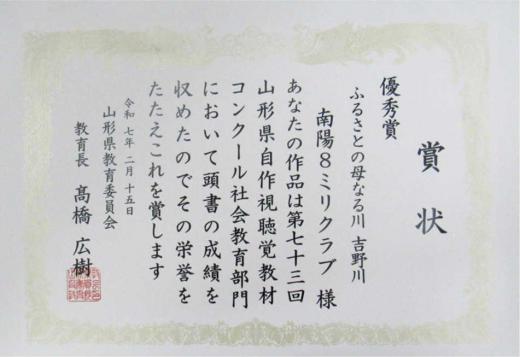 賞状
優秀賞
ふるさとの母なる川 吉野川
南陽8ミリクラブ 様
あなたの作品は第七十三回
山形県自作視聴覚教材
コンクール社会教育部門
において頭書の成績を
収めたのでその栄誉を
たたえこれを賞します
令和七年二月十五日
山形県教育委員会
教育長 髙橋 広樹